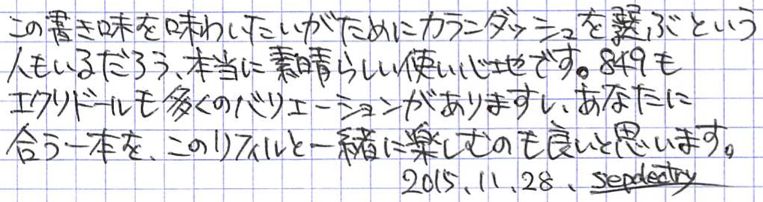 この書き味を味わいたいがためにカランダッシュを選ぶという
人もいるだろう、本当に素晴らしい使い心地です。849も
エクリドールも多くのバリエーションがありますし、あなたに
合う一本を、このリフィルと一緒に楽しむのも良いと思います。
2015.11.28、